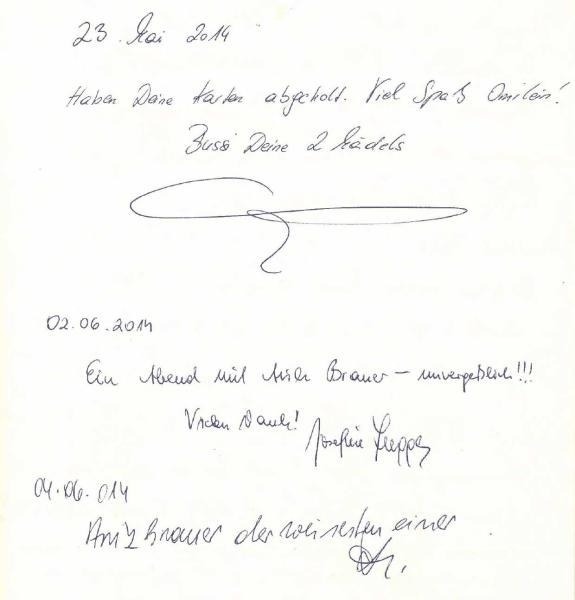 23. Mai 2014
Haben Deine Karten abgeholt. Viel Spaß Omilein!
Bussi Deine 2 Mädels
02.06.2014
Ein Abend mit Arik Brauer – unvergeßlich!!!
Vielen Dank! Josefine
04.06.014
Arik Brauer der weisesten einer